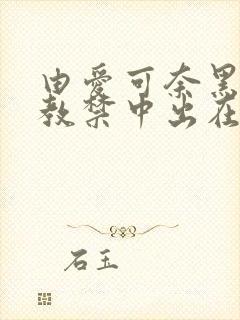 由爱可奈黑
教禁中出在
石玉